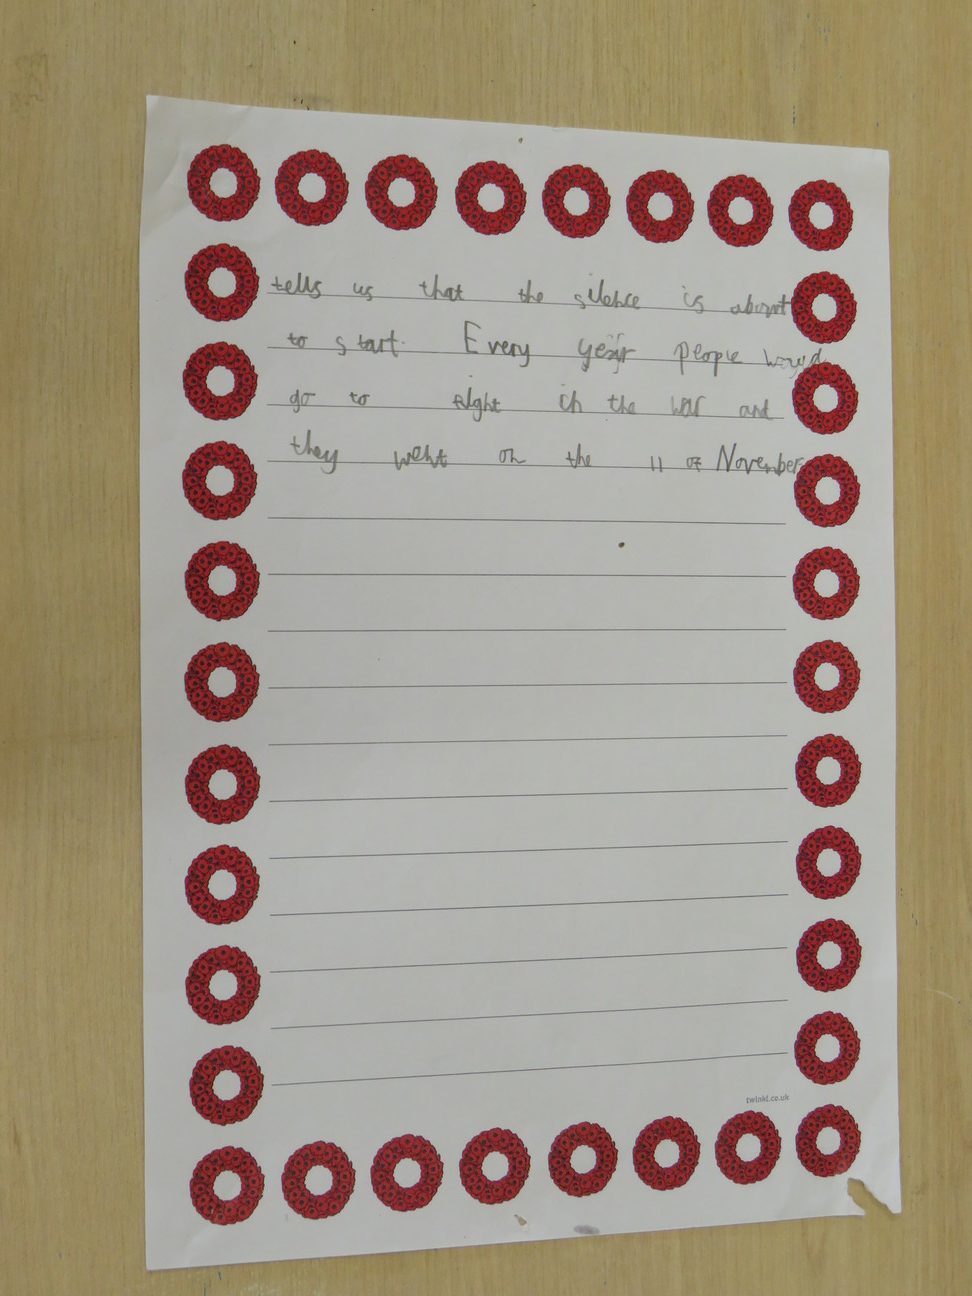 tells us that the silence is about
to start. Every year people would
go to fight in the war and
they went on the 11 of November
twinkl.co.uk